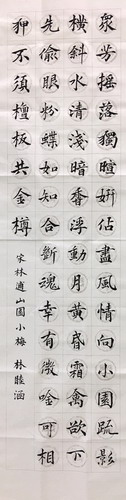 衆芳搖落獨暄妍佔盡風情向小園疏影
橫斜水清淺暗香浮動月黃昏霜禽欲下
先偷眼粉蝶如知合斷魂幸有微唫可相
狎不須檀板共金樽
宋林逋山園小梅 林睦涵